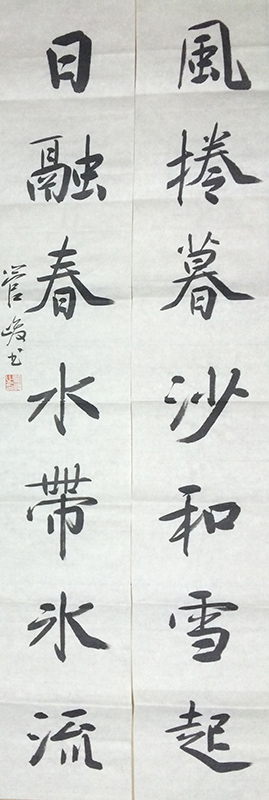 風捲暮沙和雪起
日融春水帶冰流
管峻书